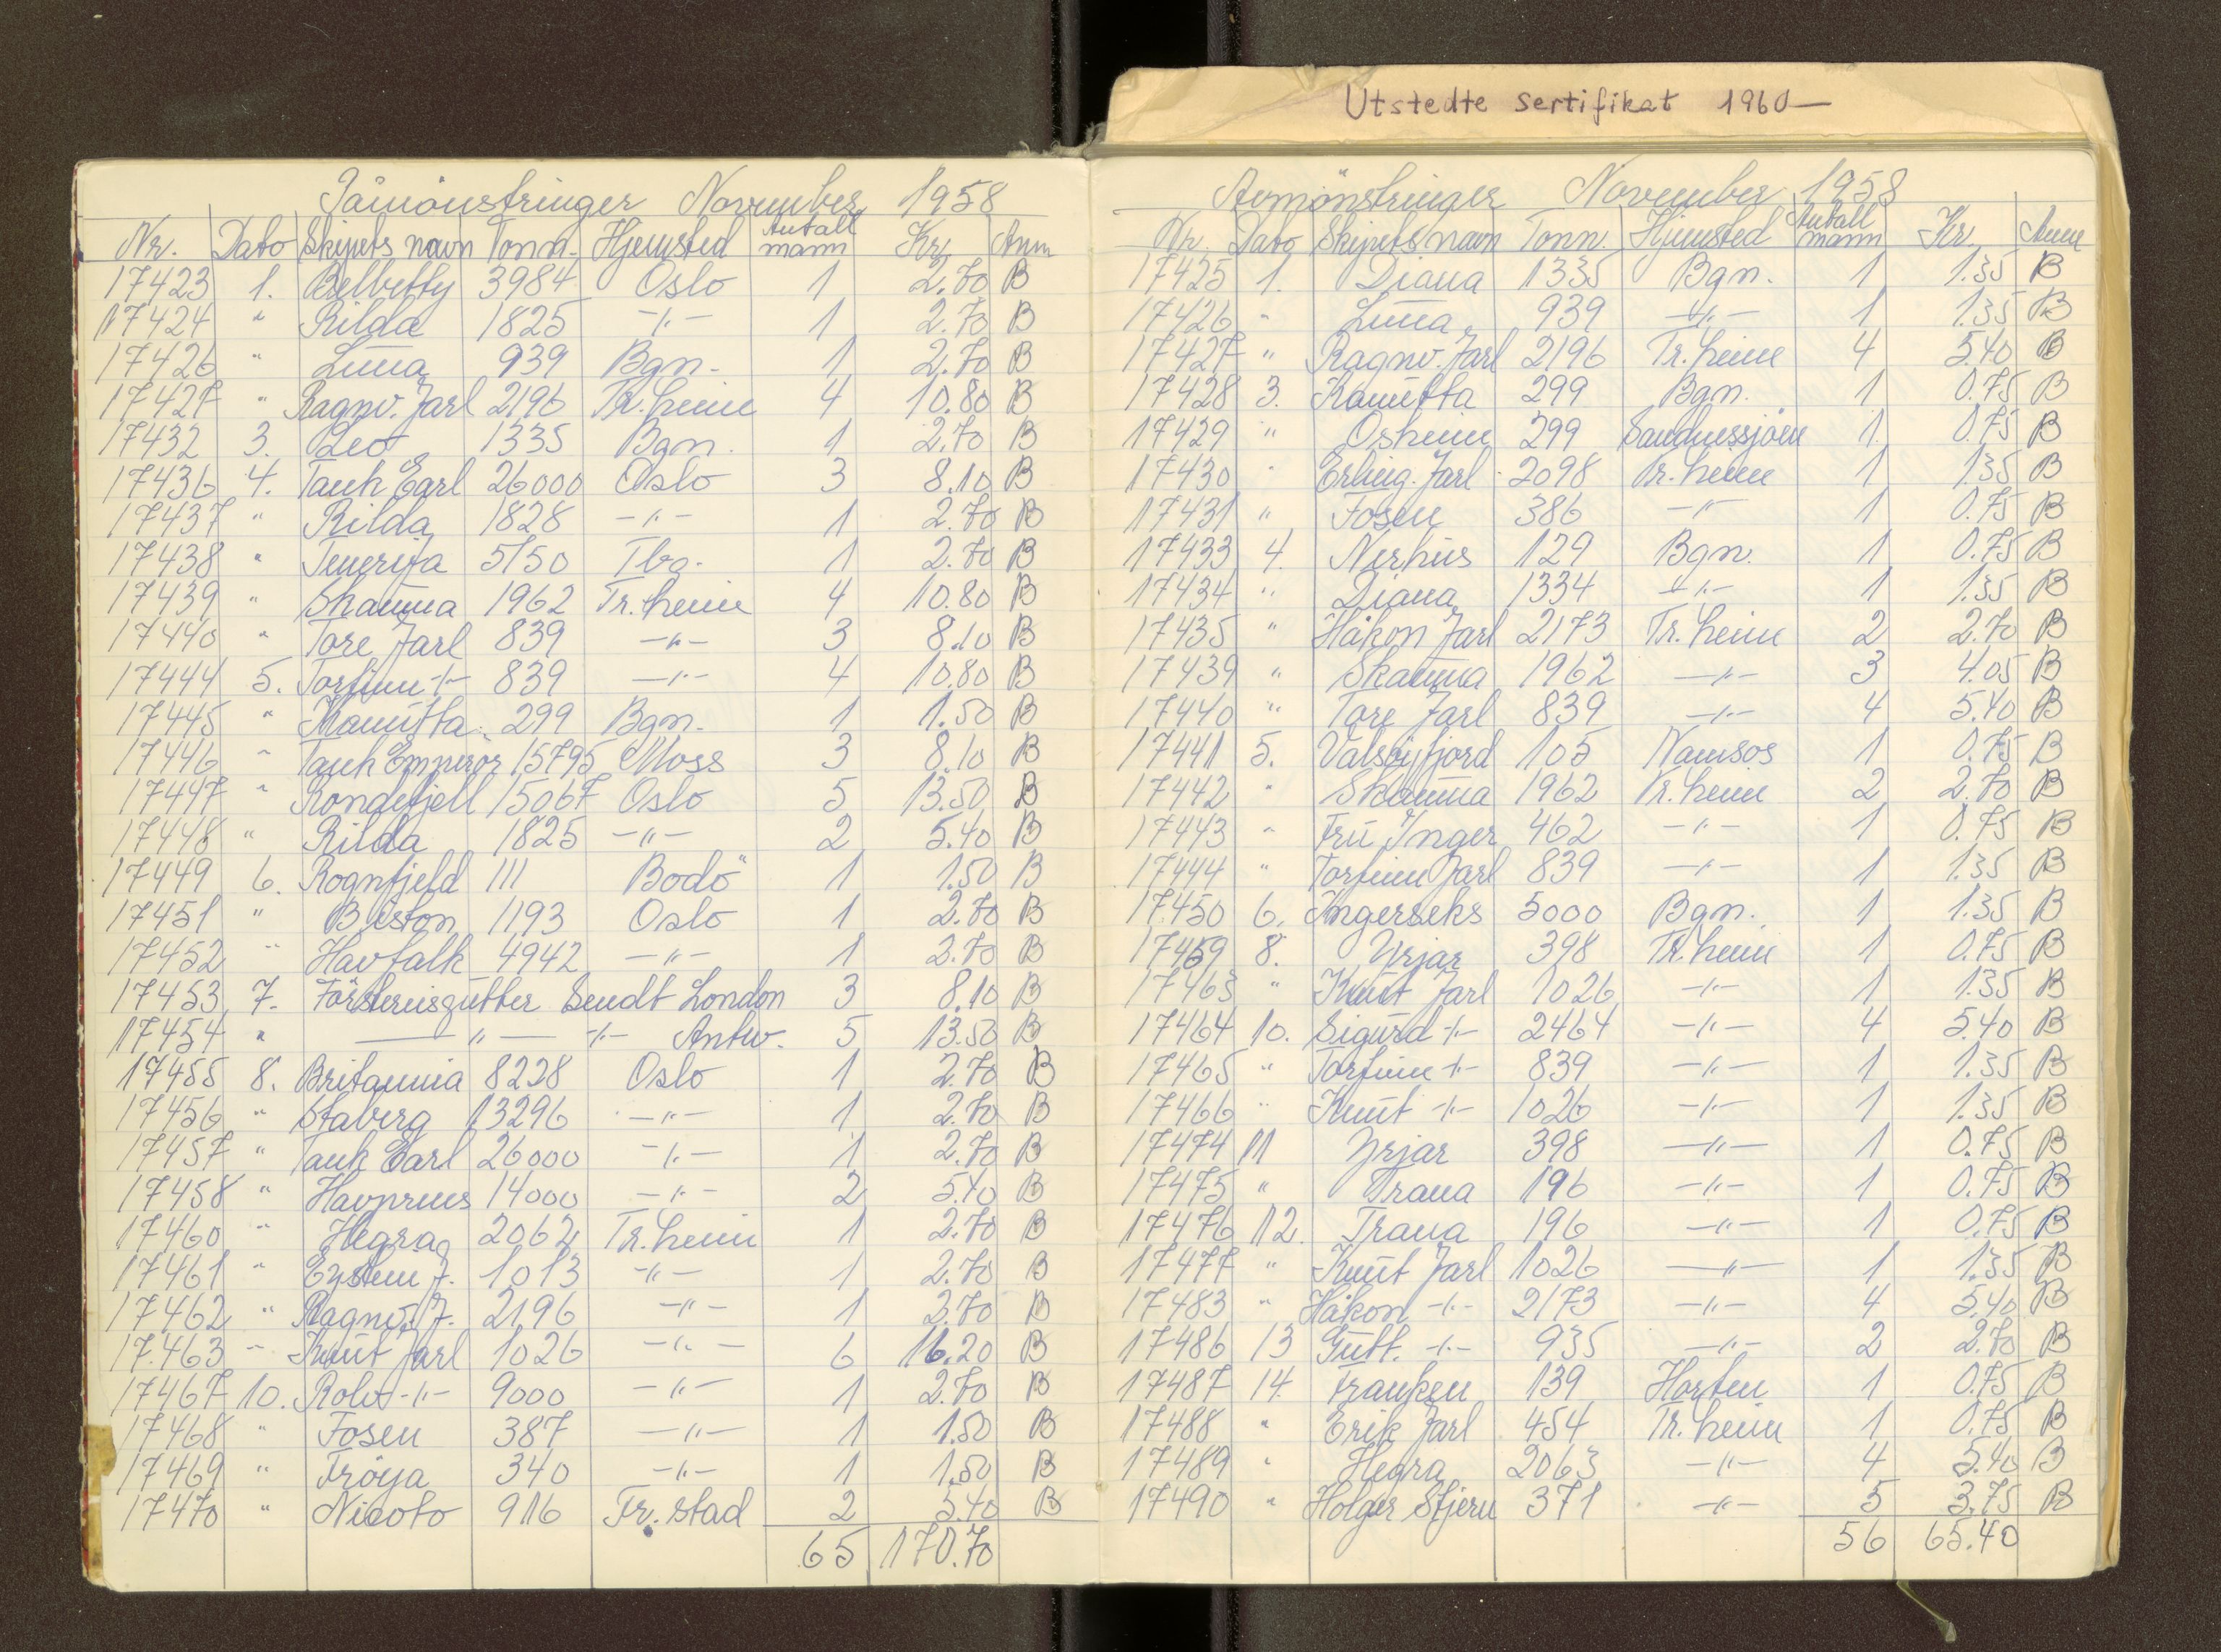 Utstedte sertifikat 1960—
Påmönstringer November 1958
Nr. Dato Skipets navn Tonn. Hjemsted Antall mann Kr. Anm
17423 1. Belbetty 3984 Oslo 1 2.70 B
17424 " Rilda 1825 -"- 1 2.70 B
17426 " Luna 939 Bgn. 1 2.70 B
17427 " Ragnv. Jarl 2196 Tr.heim 4 10.80 B
17432 3. Leo 1335 Bgn. 1 2.70 B
17436 4. Tank Earl 26000 Oslo 3 8.10 B
17437 " Rilda 1828 -"- 1 2.70 B
17438 " Tenerifa 5150 Tbg. 1 2.70 B
17439 " Skauma 1962 Tr.heim 4 10.80 B
17440 " Tore Jarl 839 -"- 3 8.10 B
17444 5. Torfinn -"- 839 -"- 4 10.80 B
17445 " Kamitta 299 Bgn. 1 1.50 B
17446 " Tank Emperor 15795 Moss 3 8.10 B
17447 " Rondefjell 15067 Oslo 5 13.50 B
17448 " Rilda 1825 -"- 2 5.40 B
17449 6. Rognfjeld 111 Bodö 1 1.50 B
17451 " Biston 1193 Oslo 1 2.70 B
17452 " Havfalk 4942 -"- 1 2.70 B
17453 7. Försterisgutter Sendt London 3 8.10 B
17454 " —"— -"- Antw. 5 13.50 B
17455 8. Britannia 8228 Oslo 1 2.70 B
17456 " Staberg 13296 -"- 1 2.70 B
17457 " Tank Earl 26000 -"- 1 2.70 B
17458 " Havprins 14000 -"- 2 5.40 B
17460 " Hegra 2062 Tr.heim 1 2.70 B
17461 " Eystein J. 1013 -"- 1 2.70 B
17462 " Ragnv. J. 2196 -"- 1 2.70 B
17463 " Knut Jarl 1026 -"- 6 16.20 B
17467 10. Rolv -"- 9000 -"- 1 2.70 B
17468 " Fosen 387 -"- 1 1.50 B
17469 " Fröya 340 -"- 1 1.50 B
17470 " Nicoto 916 Fr.stad 2 5.40 B
65 170.70
Avmönstringer November 1958
Nr. Dato Skipets navn Tonn. Hjemsted Antall mann Kr. Anm
17425 1. Diana 1335 Bgn. 1 1.35 B
17426 " Luna 939 -"- 1 1.35 B
17427 " Ragnv. Jarl 2196 Tr.heim 4 5.40 B
17428 3. Kamitta 299 Bgn. 1 0.75 B
17429 " Osheim 299 Sandnessjöen 1 0.75 B
17430 " Erling Jarl 2098 Tr.heim 1 1.35 B
17431 " Fosen 386 -"- 1 0.75 B
17433 4. Nerhus 129 Bgn. 1 0.75 B
17434 " Diana 1334 -"- 1 1.35 B
17435 " Håkon Jarl 2173 Tr.heim 2 2.70 B
17439 " Skauma 1962 -"- 3 4.05 B
17440 " Tore Jarl 839 -"- 4 5.40 B
17441 5. Valsöyfjord 105 Namsos 1 0.75 B
17442 " Skauma 1962 Tr.heim 2 2.70 B
17443 " Fru Inger 462 -"- 1 0.75 B
17444 " Torfinn Jarl 839 -"- 1 1.35 B
17450 6. Ingerseks 5000 Bgn. 1 1.35 B
17459 8. Yrjar 398 Tr.heim 1 0.75 B
17463 " Knut Jarl 1026 -"- 1 1.35 B
17464 10. Sigurd -"- 2464 -"- 4 5.40 B
17465 " Torfinn -"- 839 -"- 1 1.35 B
17466 " Knut -"- 1026 -"- 1 1.35 B
17474 11 Yrjar 398 -"- 1 0.75 B
17475 " Trana 196 -"- 1 0.75 B
17476 12. Trana 196 -"- 1 0.75 B
17477 " Knut Jarl 1026 -"- 1 1.35 B
17483 " Håkon -"- 2173 -"- 4 5.40 B
17486 13 Gutt. -"- 935 -"- 2 2.70 B
17487 14. Franken 139 Horten 1 0.75 B
17488 " Erik Jarl 454 Tr.heim 1 0.75 B
17489 " Hegra 2063 -"- 4 5.40 B
17490 " Holger Stjern 371 -"- 5 3.75 B
56 65.40